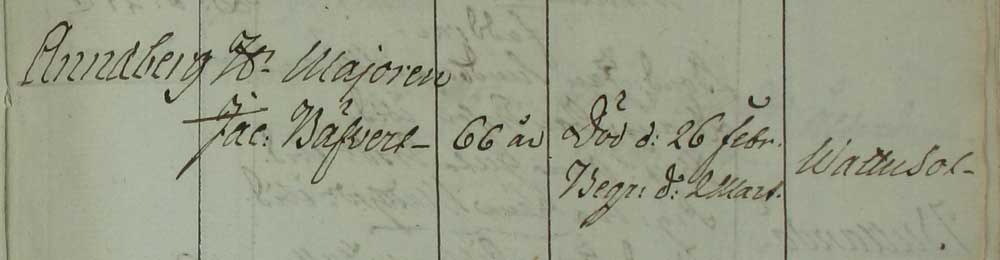 Anneberg Hr. Majoren
Jac: Bäfvert 66 år Död d: 26 febr. Wattusot
Begr: d: 2 Mart.